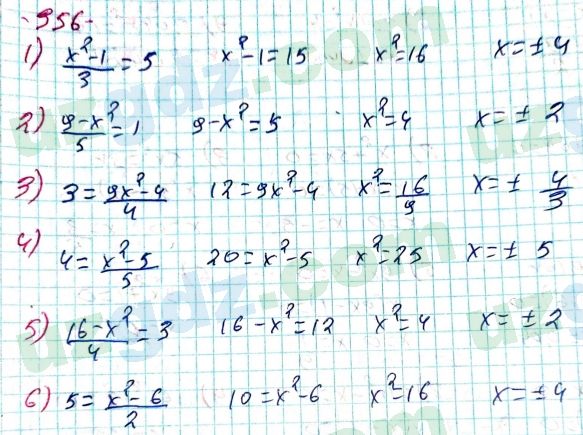 356.
1) (x²-1)/3 = 5   x²-1=15   x²=16   x=±4
2) (9-x²)/5 = 1   9-x²=5   x²=4   x=±2
3) 3 = (9x²-4)/4   12=9x²-4   x²=16/9   x=± 4/3
4) 4 = (x²-5)/5   20=x²-5   x²=25   x=± 5
5) (16-x²)/4 = 3   16-x²=12   x²=4   x=±2
6) 5 = (x²-6)/2   10=x²-6   x²=16   x=±4